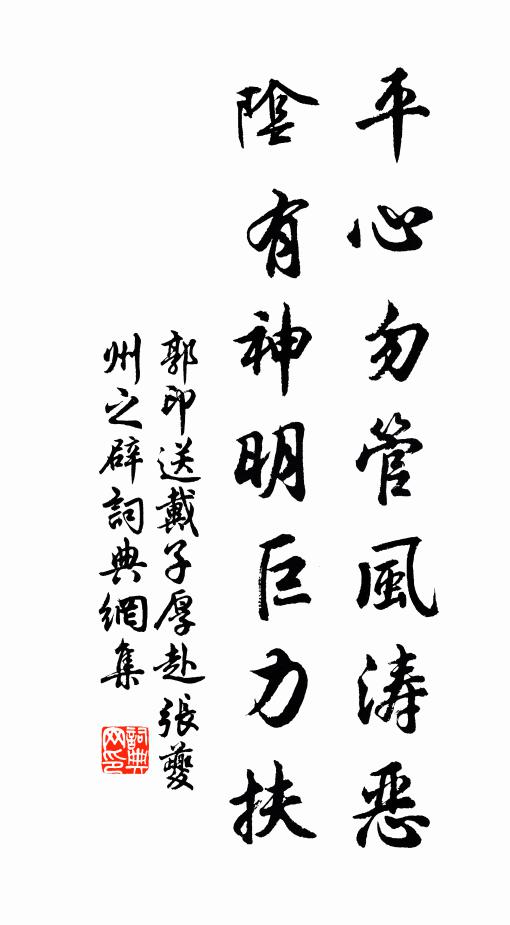 平心勿管風涛惡
陰有神明巨力扶
郭印送戴子厚赴張夔
州之辟詞典網集
詞典网印